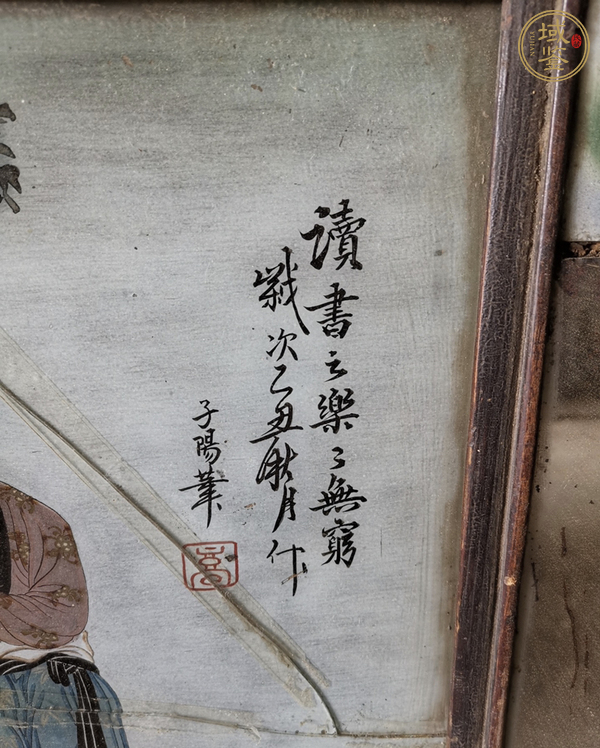 讀書之樂々無窮
歲次乙丑秋月作
子陽筆
域鑒
YUJIAN